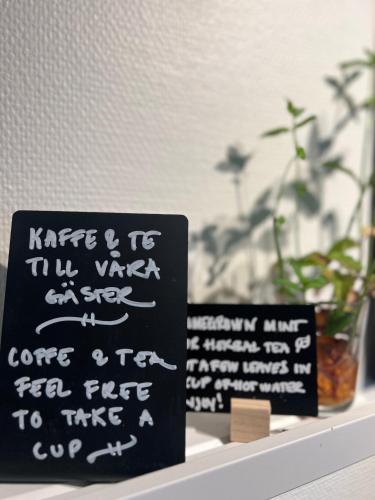 KAFFE & TE
TILL VÅRA
GÄSTER
COFFE & TEA
FEEL FREE
TO TAKE A
CUP
MINT
HERBAL TEA
A FEW LEAVES IN
CUP OF HOT WATER